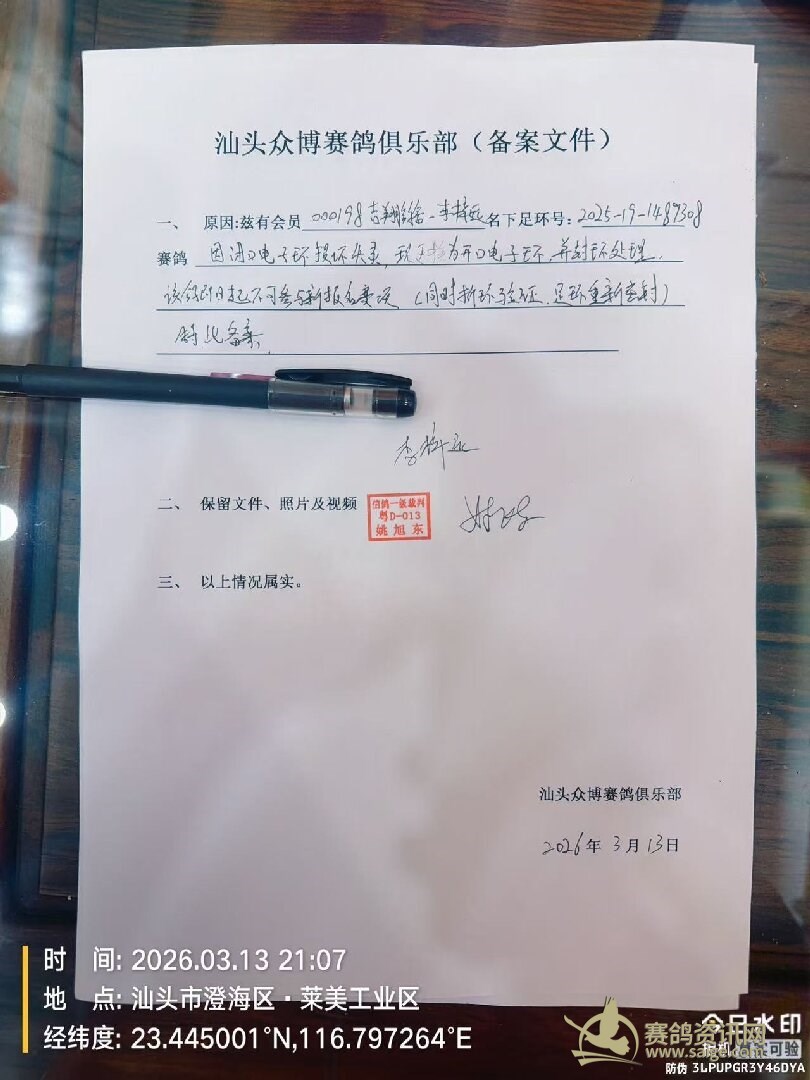 汕头众博赛鸽俱乐部（备案文件）
一、 原因:兹有会员 000198 名下足环号: 2025-19-1489308
赛鸽 因闭口电子环损坏失灵, 现更换为开口电子环, 并封环处理.
该鸽即日起不可参与新报名赛项 (同时拆环验证, 足环重新密封)
特此备案.
二、 保留文件、照片及视频
信鸽一级裁判
粤D-013
姚旭东
三、 以上情况属实。
汕头众博赛鸽俱乐部
2026年 3月13日
时 间: 2026.03.13 21:07
地 点: 汕头市澄海区·莱美工业区
经纬度: 23.445001°N,116.797264°E
今日水印
相机 真实可验
防伪 3LPUPGR3Y46DYA
赛鸽资讯网
www.saige.com